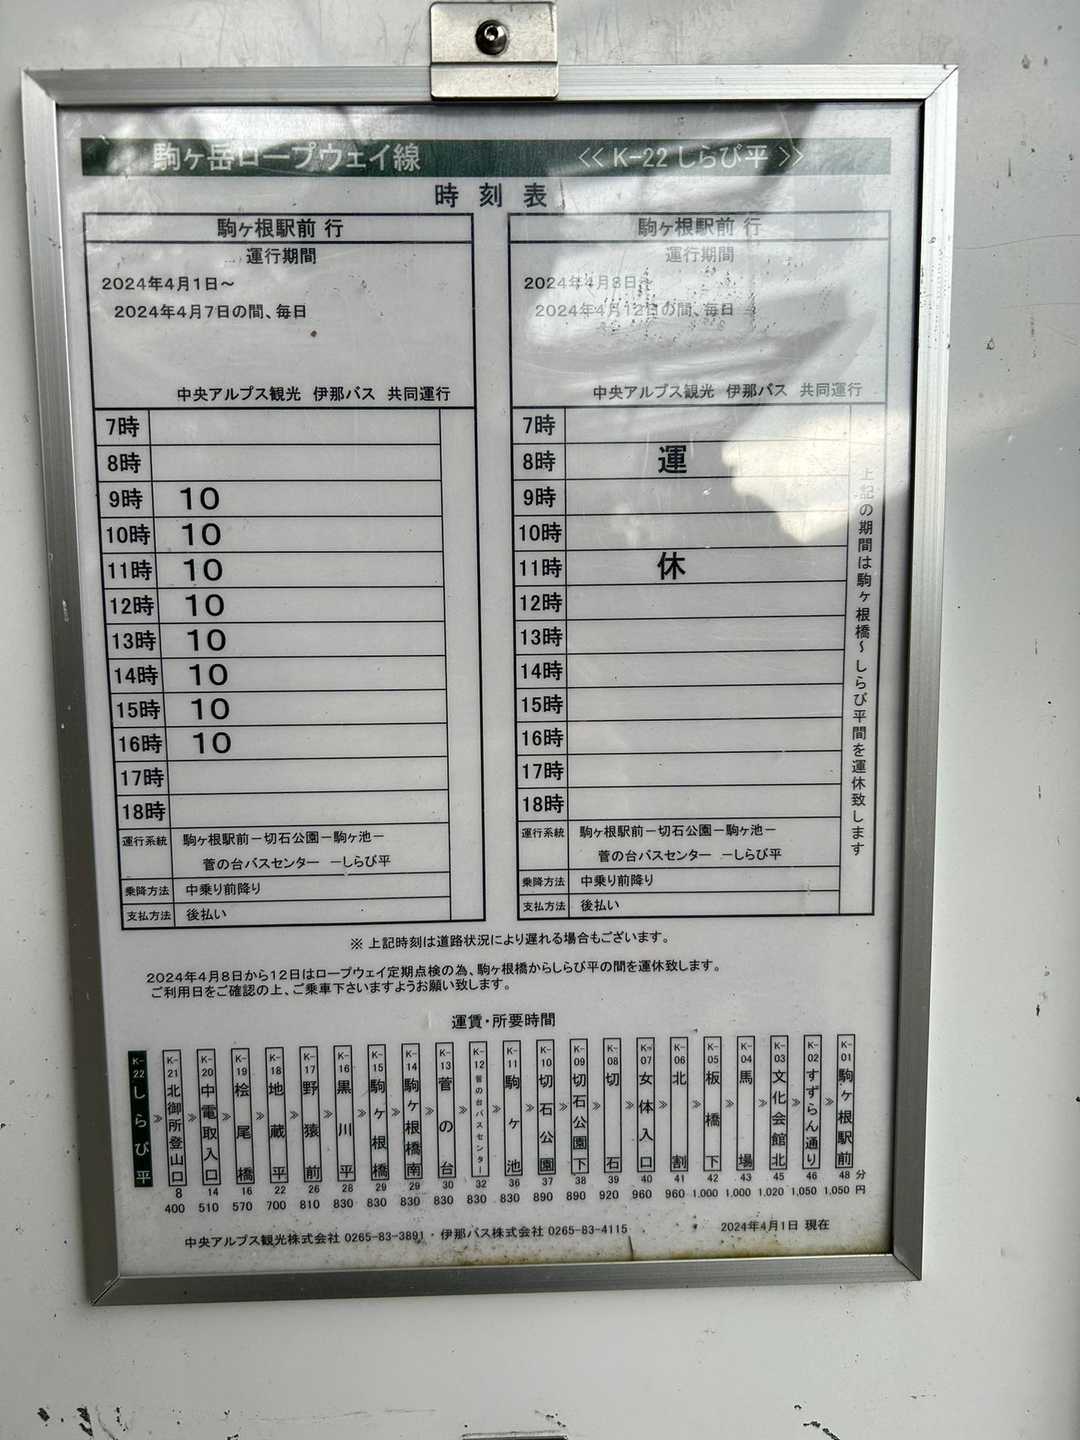 駒ヶ岳ロープウェイ線 << K-22 しらび平 >>
時刻表
駒ヶ根駅前 行
運行期間
2024年4月1日～
2024年4月7日の間、毎日
中央アルプス観光 伊那バス 共同運行
7時
8時
9時 10
10時 10
11時 10
12時 10
13時 10
14時 10
15時 10
16時 10
17時
18時
運行系統 駒ヶ根駅前－切石公園－駒ヶ池－
菅の台バスセンター －しらび平
乗降方法 中乗り前降り
支払方法 後払い
駒ヶ根駅前 行
運行期間
2024年4月8日～
2024年4月12日の間、毎日
中央アルプス観光 伊那バス 共同運行
7時
8時 運
9時
10時
11時 休
12時
13時
14時
15時
16時
17時
18時
運行系統 駒ヶ根駅前－切石公園－駒ヶ池－
菅の台バスセンター －しらび平
乗降方法 中乗り前降り
支払方法 後払い
上記の期間は駒ヶ根橋～しらび平間を運休致します
※ 上記時刻は道路状況により遅れる場合もございます。
2024年4月8日から12日はロープウェイ定期点検の為、駒ヶ根橋からしらび平の間を運休致します。
ご利用日をご確認の上、ご乗車下さいますようお願い致します。
運賃・所要時間
K-22 しらび平
K-21 北御所登山口
K-20 中電取入口
K-19 桧尾橋
K-18 地蔵平
K-17 野猿前
K-16 黒川平
K-15 駒ヶ根橋
K-14 駒ヶ根橋南
K-13 菅の台
K-12 菅の台バスセンター
K-11 駒ヶ池
K-10 切石公園
K-09 切石公園下
K-08 切石
K-07 女体入口
K-06 北割
K-05 板橋下
K-04 馬場
K-03 文化会館北
K-02 すずらん通り
K-01 駒ヶ根駅前
8 14 16 22 26 28 29 29 30 32 36 37 38 39 40 41 42 43 45 46 48 分
400 510 570 700 810 830 830 830 830 830 830 890 890 920 960 960 1,000 1,000 1,020 1,050 1,050 円
中央アルプス観光株式会社 0265-83-3891・伊那バス株式会社 0265-83-4115
2024年4月1日 現在